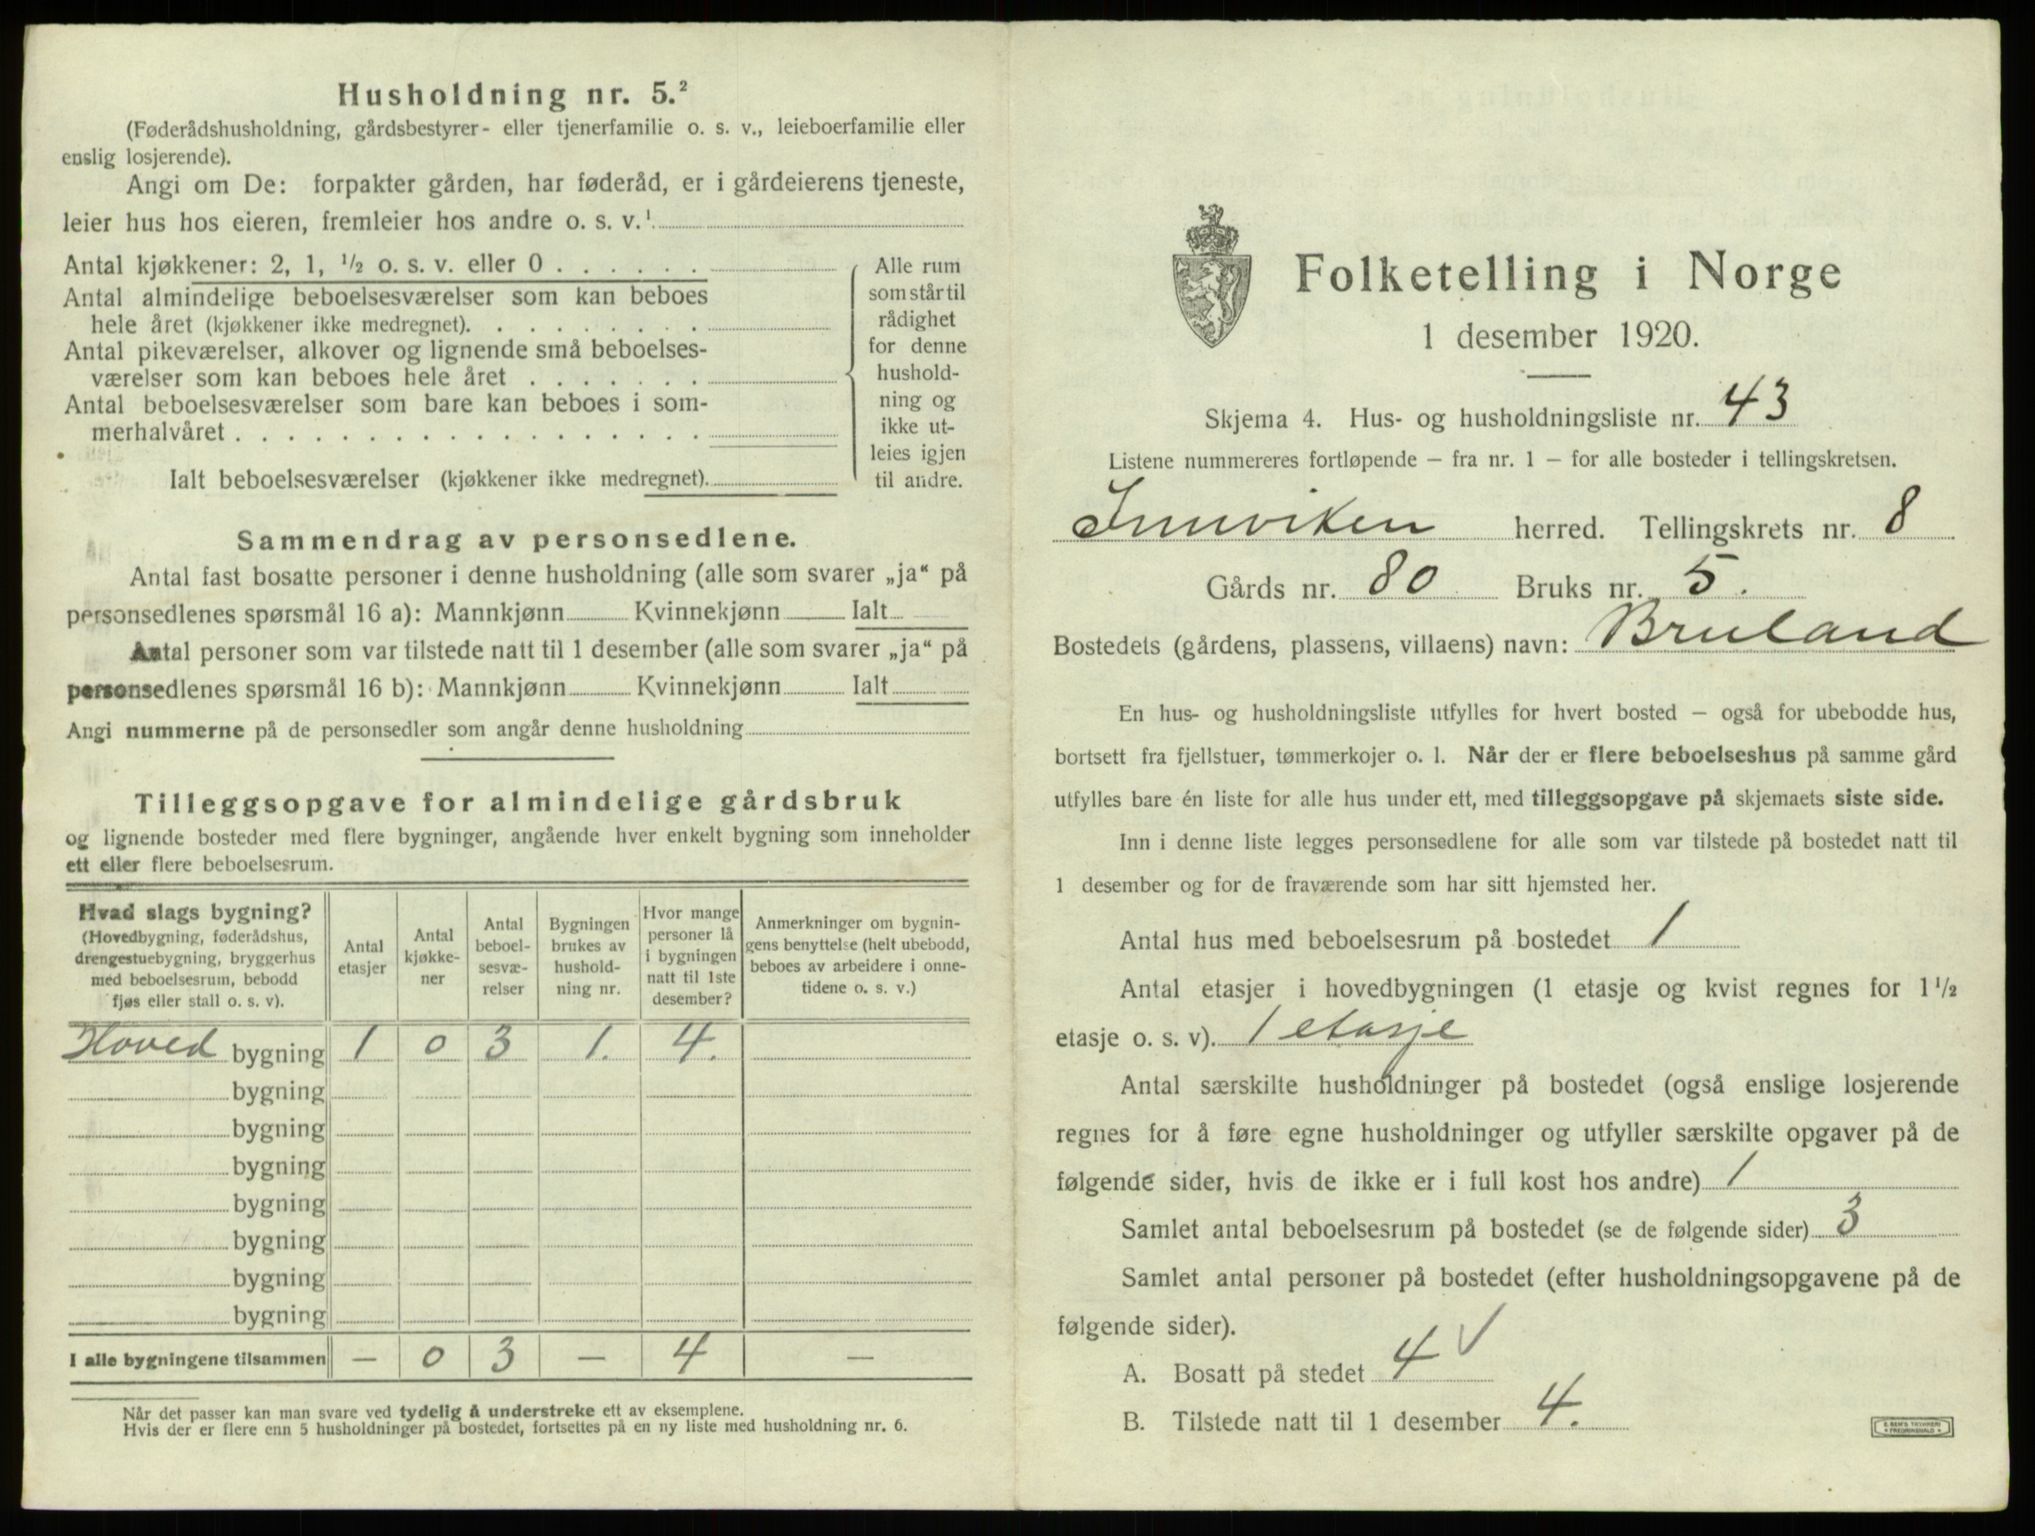 Husholdning nr. 5.²
(Føderådshusholdning, gårdsbestyrer- eller tjenerfamilie o. s. v., leieboerfamilie eller
enslig losjerende).
Angi om De: forpakter gården, har føderåd, er i gårdeierens tjeneste,
leier hus hos eieren, fremleier hos andre o. s. v.¹
Antal kjøkkener: 2, 1, ½ o. s. v. eller 0 . . . . . .
Antal almindelige beboelsesværelser som kan beboes
hele året (kjøkkener ikke medregnet). . . . . . . . .
Antal pikeværelser, alkover og lignende små beboelses-
værelser som kan beboes hele året . . . . . . .
Antal beboelsesværelser som bare kan beboes i som-
merhalvåret . . . . . . . . . . . . . . . . . .
Ialt beboelsesværelser (kjøkkener ikke medregnet).
Alle rum
som står til
rådighet
for denne
hushold-
ning og
ikke ut-
leies igjen
til andre.
Sammendrag av personsedlene.
Antal fast bosatte personer i denne husholdning (alle som svarer „ja“ på
personsedlenes spørsmål 16 a): Mannkjønn Kvinnekjønn Ialt
Antal personer som var tilstede natt til 1 desember (alle som svarer „ja“ på
personsedlenes spørsmål 16 b): Mannkjønn Kvinnekjønn Ialt
Angi nummerne på de personsedler som angår denne husholdning
Tilleggsopgave for almindelige gårdsbruk
og lignende bosteder med flere bygninger, angående hver enkelt bygning som inneholder
ett eller flere beboelsesrum.
Hvad slags bygning?
(Hovedbygning, føderådshus,
drengestuebygning, bryggerhus
med beboelsesrum, bebodd
fjøs eller stall o. s. v).
Antal
etasjer
Antal
kjøkke-
ner
Antal
beboel-
sesvæ-
relser
Bygningen
brukes av
hushold-
ning nr.
Hvor mange
personer lå
i bygningen
natt til 1ste
desember?
Anmerkninger om bygnin-
gens benyttelse (helt ubebodd,
beboes av arbeidere i onne-
tidene o. s. v.)
Hoved bygning 1 0 3 1. 4.
bygning
bygning
bygning
bygning
bygning
bygning
bygning
I alle bygningene tilsammen — 0 3 — 4 —
Når det passer kan man svare ved tydelig å understreke ett av eksemplene.
Hvis der er flere enn 5 husholdninger på bostedet, fortsettes på en ny liste med husholdning nr. 6.
Folketelling i Norge
1 desember 1920.
Skjema 4. Hus- og husholdningsliste nr. 43
Listene nummereres fortløpende — fra nr. 1 — for alle bosteder i tellingskretsen.
Innviken herred. Tellingskrets nr. 8
Gårds nr. 80 Bruks nr. 5.
Bostedets (gårdens, plassens, villaens) navn: Bruland
En hus- og husholdningsliste utfylles for hvert bosted — også for ubebodde hus,
bortsett fra fjellstuer, tømmerkojer o. l. Når der er flere beboelseshus på samme gård
utfylles bare én liste for alle hus under ett, med tilleggsopgave på skjemaets siste side.
Inn i denne liste legges personsedlene for alle som var tilstede på bostedet natt til
1 desember og for de fraværende som har sitt hjemsted her.
Antal hus med beboelsesrum på bostedet 1
Antal etasjer i hovedbygningen (1 etasje og kvist regnes for 1½
etasje o. s. v). 1 etasje
Antal særskilte husholdninger på bostedet (også enslige losjerende
regnes for å føre egne husholdninger og utfyller særskilte opgaver på de
følgende sider, hvis de ikke er i full kost hos andre) 1
Samlet antal beboelsesrum på bostedet (se de følgende sider) 3
Samlet antal personer på bostedet (efter husholdningsopgavene på de
følgende sider).
A. Bosatt på stedet 4 √
B. Tilstede natt til 1 desember 4.